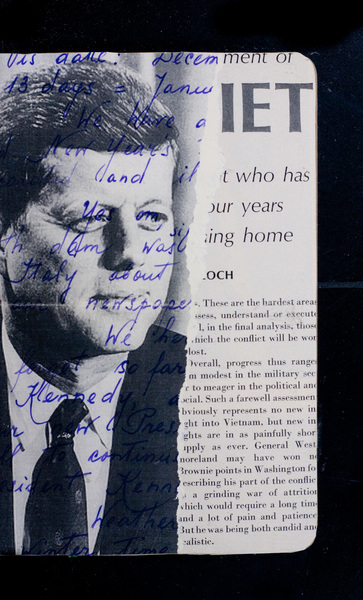 Vis date: December
13 days = Janu
We have a
New Years
and il
Yes on
th dam wasl
Italy about
newspape
We he
forget so far
Kennedy a
new Pres
to continue
sident Kenn
Weather
winter time
ment of
IET
t who has
our years
ing home
LOCH
s. These are the hardest areas
sess, understand or execute
l, in the final analysis, those
hich the conflict will be won
lost.
Overall, progress thus ranges
m modest in the military sec
r to meager in the political and
ocial. Such a farewell assessment
bviously represents no new in
ght into Vietnam, but new in
ghts are in as painfully short
upply as ever. General West
moreland may have won no
Brownie points in Washington fo
escribing his part of the conflic
s a grinding war of attrition
hich would require a long time
and a lot of pain and patience
But he was being both candid and
ealistic.